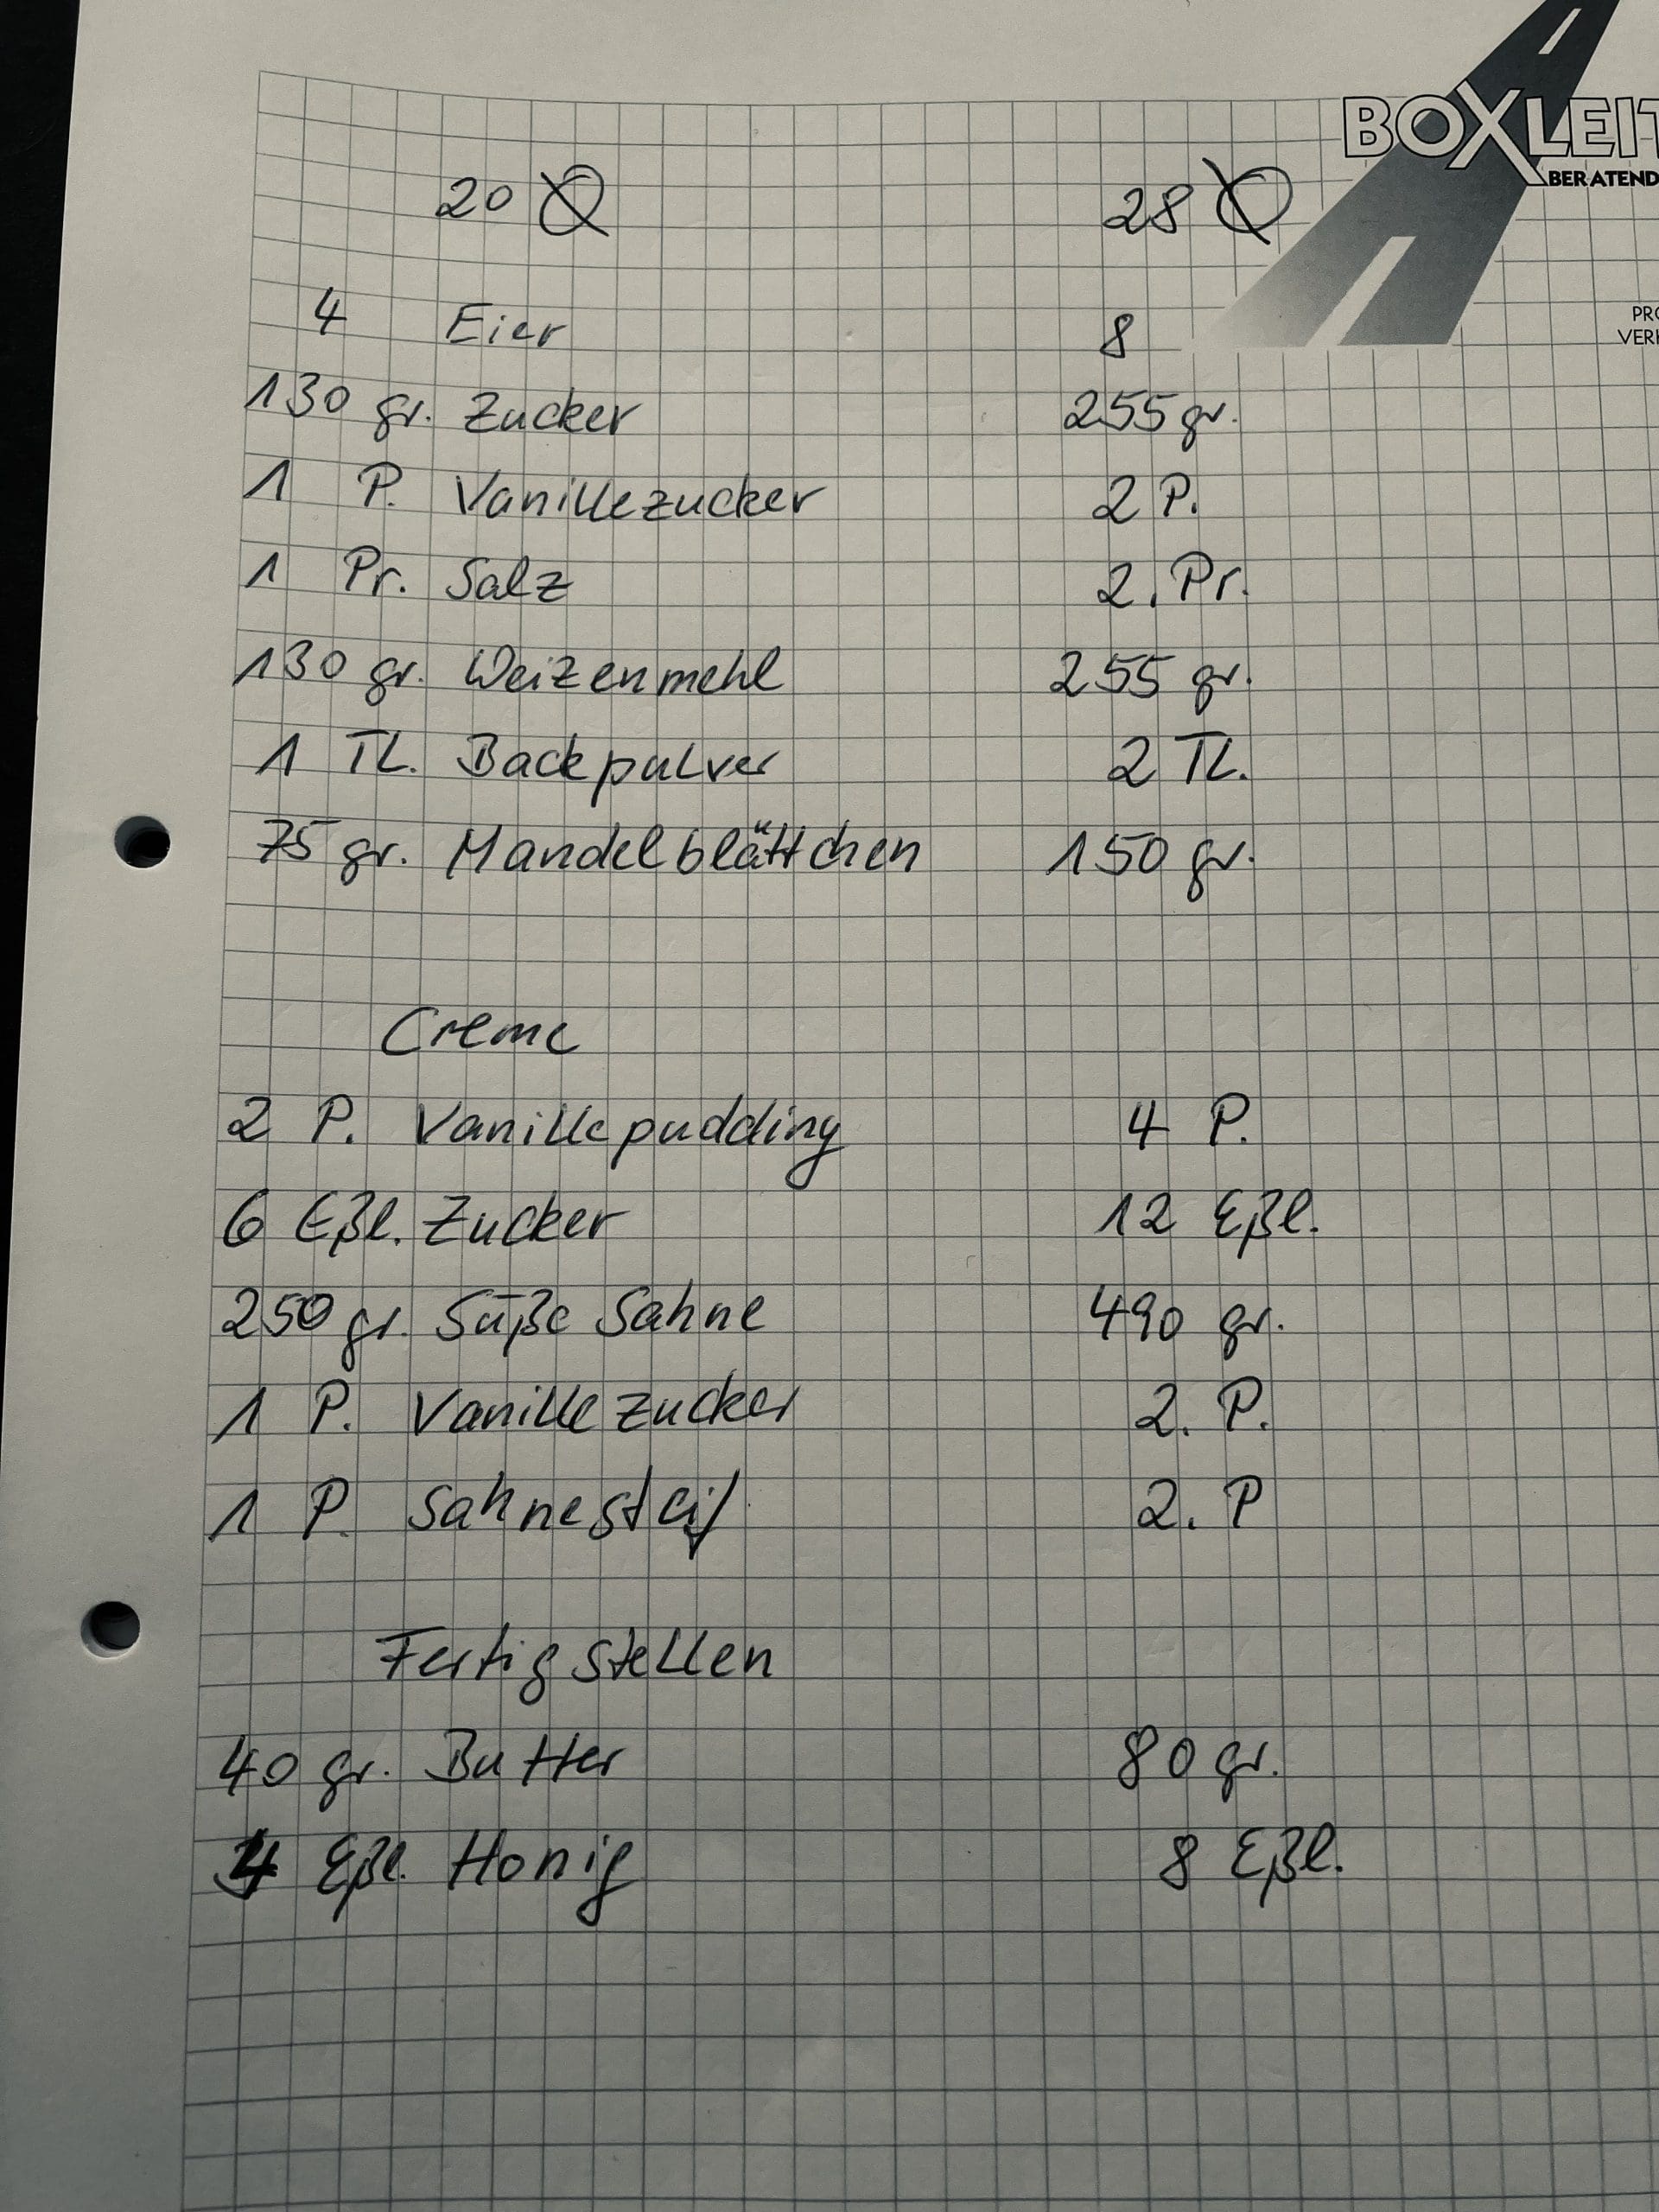 BOXLEIT
BERATEND
PRO
VERK
20 Ø 28 Ø
4 Eier 8
130 gr. Zucker 255 gr.
1 P. Vanillezucker 2 P.
1 Pr. Salz 2. Pr.
130 gr. Weizenmehl 255 gr.
1 TL. Backpulver 2 TL.
75 gr. Mandelblättchen 150 gr.
Creme
2 P. Vanillepudding 4 P.
6 Eßl. Zucker 12 Eßl.
250 gr. Süße Sahne 490 gr.
1 P. Vanillezucker 2. P.
1 P. Sahnesteif 2. P
Fertigstellen
40 gr. Butter 80 gr.
4 Eßl. Honig 8 Eßl.